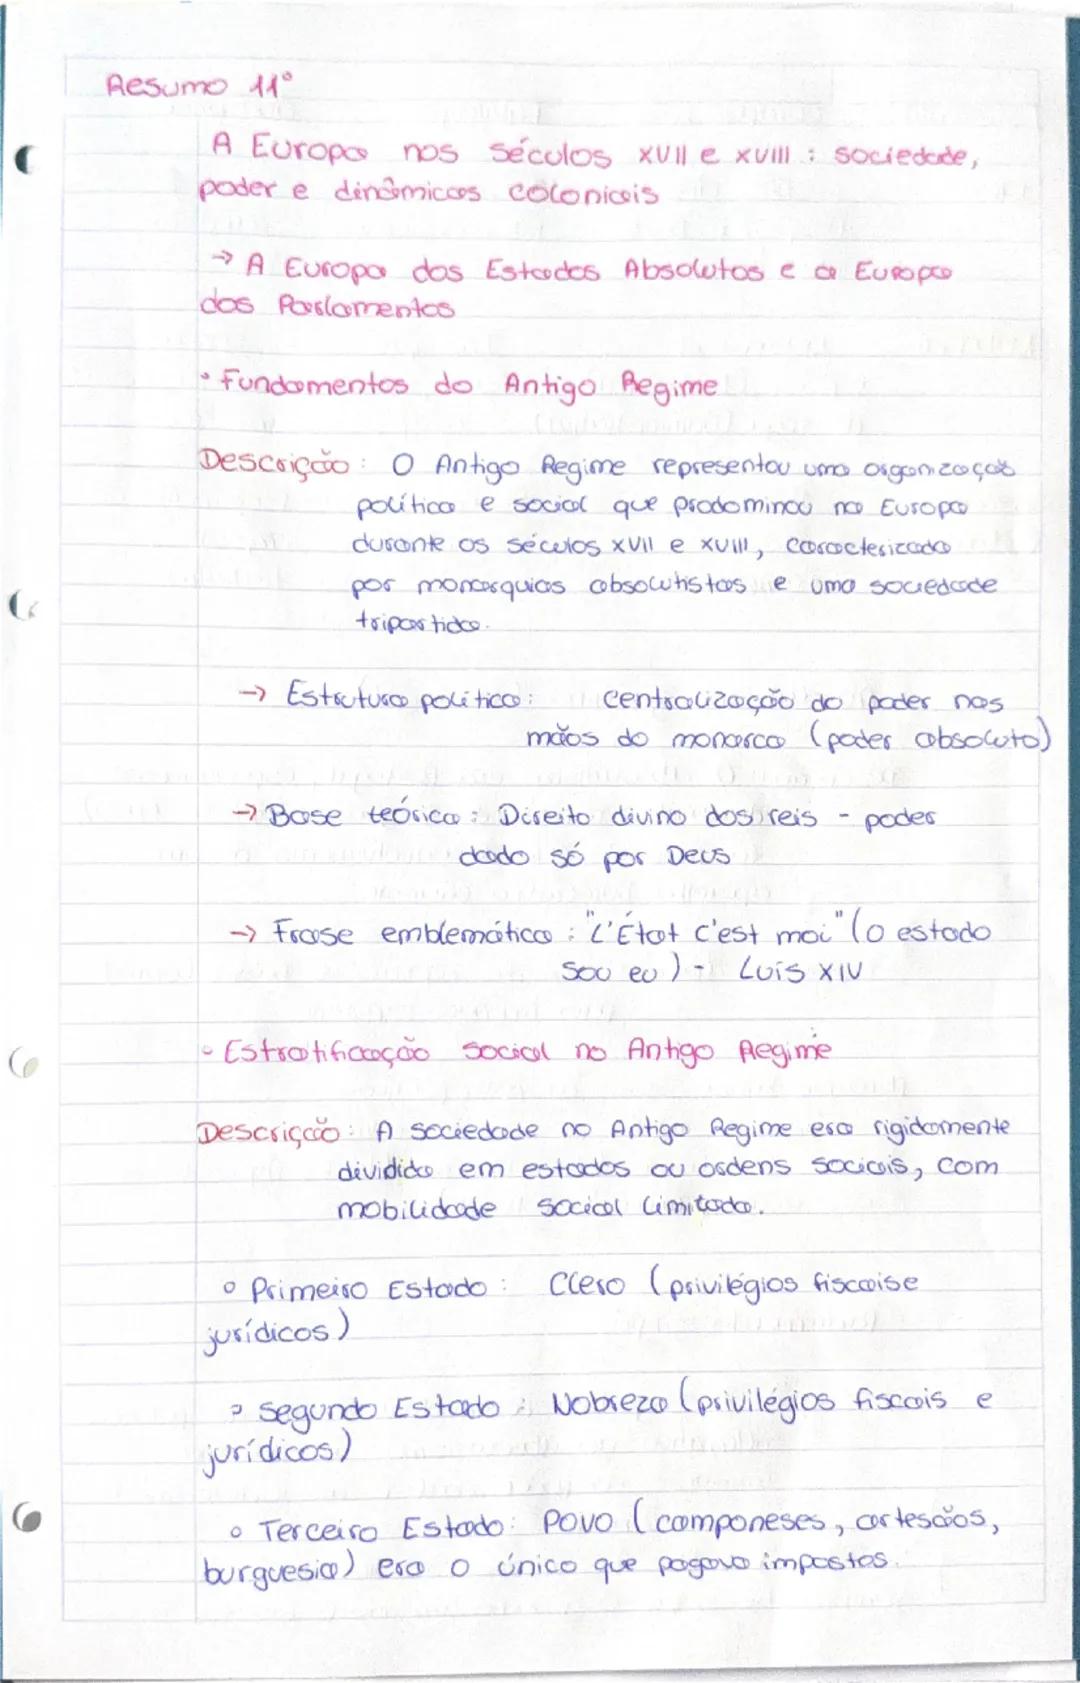 Resumo 11º
A Europa nos séculos XVII e XVIII : sociedade,
poder e dinâmicas coloniais
→ A Europa dos Estados Absolutos e a Europa
dos Parlamentos
• Fundamentos do Antigo Regime
Descrição : O Antigo Regime representou uma organização
política e social que predominou na Europa
durante os séculos XVII e XVIII, caracterizada
por monarquias absolutistas e uma sociedade
tripartida.
→ Estrutura política : centralização do poder nas
mãos do monarca (poder absoluto)
→ Base teórica : Direito divino dos reis - poder
dado só por Deus
→ Frase emblemática : "L'État c'est moi" (o estado
sou eu) - Luís XIV
• Estratificação social no Antigo Regime
Descrição : A sociedade no Antigo Regime era rigidamente
dividida em estados ou ordens sociais, com
mobilidade social limitada.
° Primeiro Estado : Clero (privilégios fiscais e
jurídicos)
° Segundo Estado : Nobreza (privilégios fiscais e
jurídicos)
° Terceiro Estado : Povo (camponeses, artesãos,
burguesia) era o único que pagava impostos.